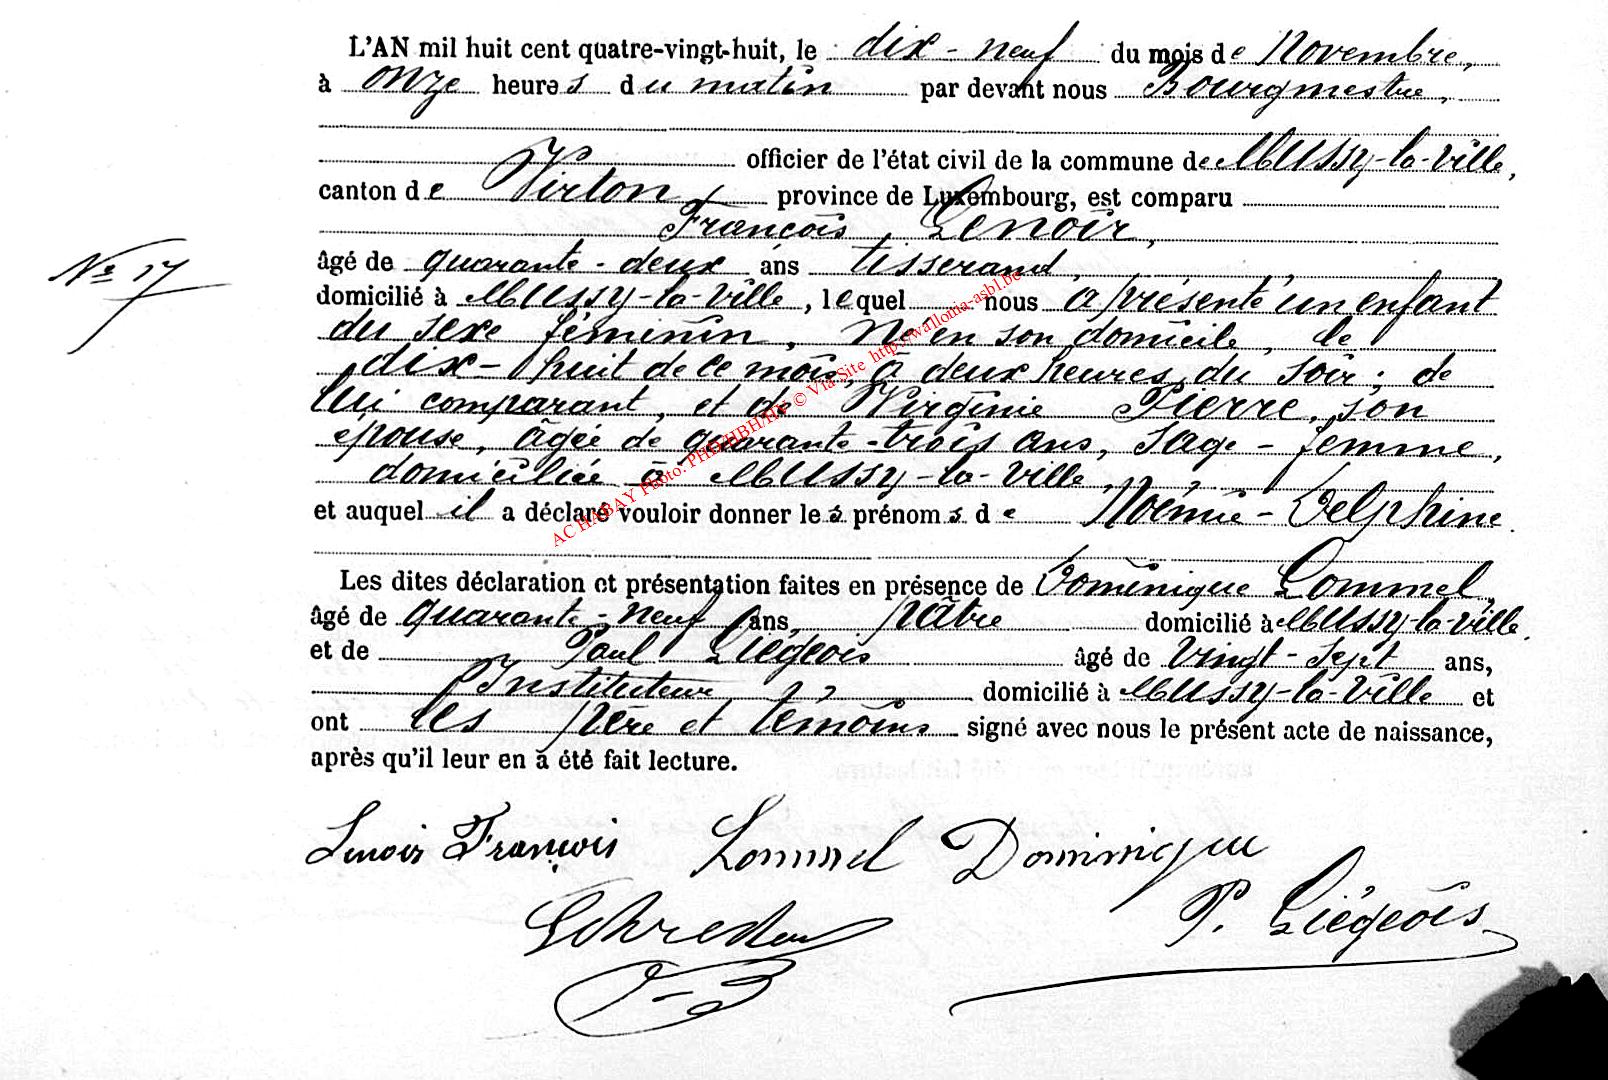 L'AN mil huit cent quatre-vingt-huit, le dix-neuf du mois de Novembre,
à onze heures du matin par devant nous Bourgmestre,
officier de l'état civil de la commune de Mussy-la-Ville,
canton de Virton, province de Luxembourg, est comparu
François Lenoir,
âgé de quarante-deux ans tisserand,
N° 17
domicilié à Mussy-la-Ville, lequel nous a présenté un enfant
du sexe féminin, né en son domicile, le
dix-huit de ce mois, à deux heures du soir, de
lui comparant, et de Virginie Pierre, son
épouse, âgée de quarante-trois ans, sage-femme,
domiciliée à Mussy-la-Ville,
et auquel il a déclaré vouloir donner les prénoms de Noémie-Delphine.
AC HABAY Photo: PHD/HBH/HV © Via Site http://wallonia-asbl.be
Les dites déclaration et présentation faites en présence de Dominique Lommel,
âgé de quarante-neuf ans, pâtre domicilié à Mussy-la-Ville.
et de Paul Liégeois âgé de vingt-sept ans,
Instituteur, domicilié à Mussy-la-Ville et
ont les père et témoins signé avec nous le présent acte de naissance,
après qu'il leur en a été fait lecture.
Lenoir François Lommel Dominique
P. Liégeois